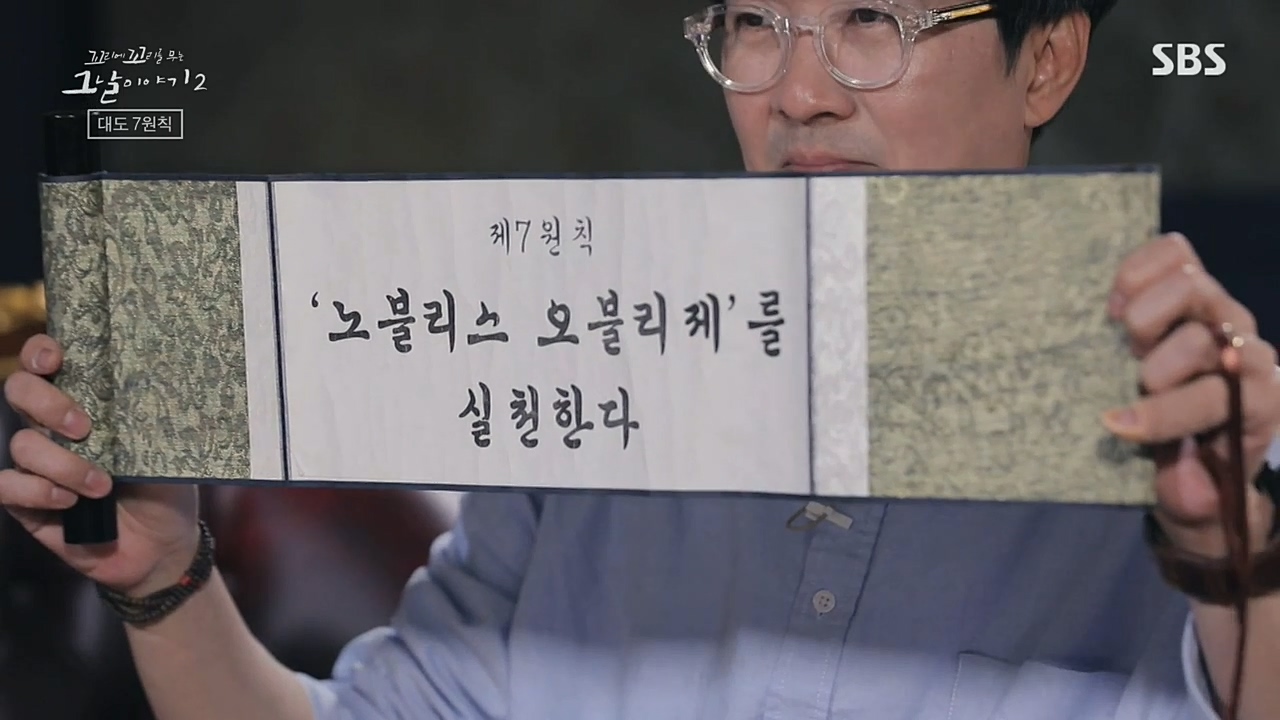 꼬리에 꼬리를 무는
그날 이야기 2
대도 7원칙
SBS
제7원칙
‘노블리스 오블리제’를
실천한다